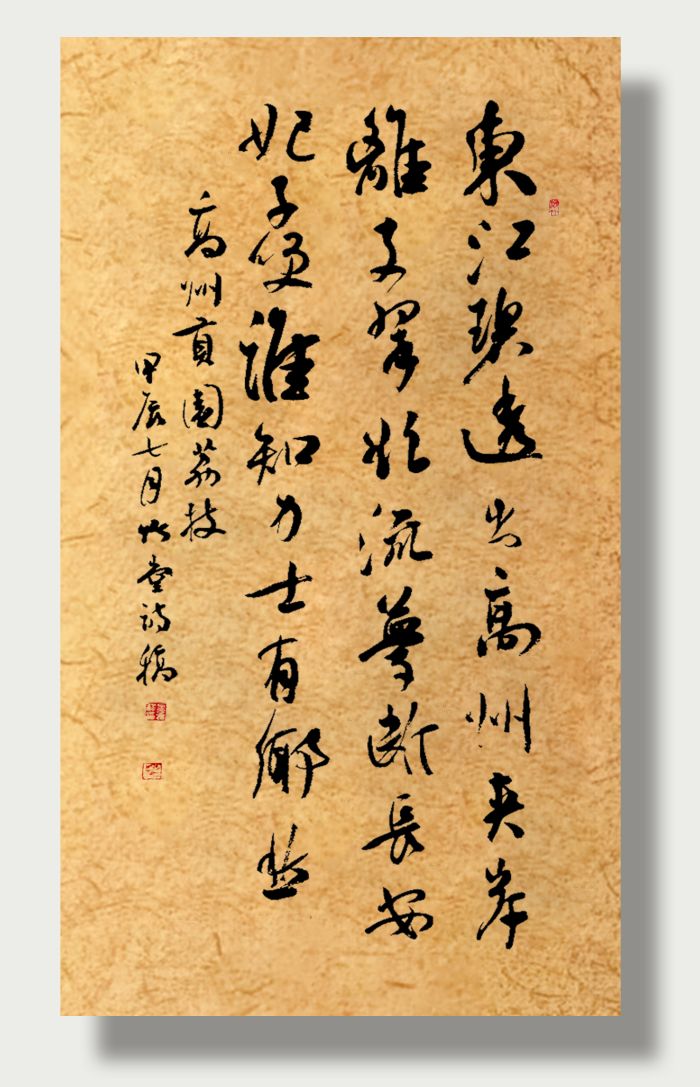 東江碧透出高州夾岸
離支翠欲流夢斷長安
妃子笑誰知力士有鄉愁
高州貢園荔枝
甲辰七月堂詩稿